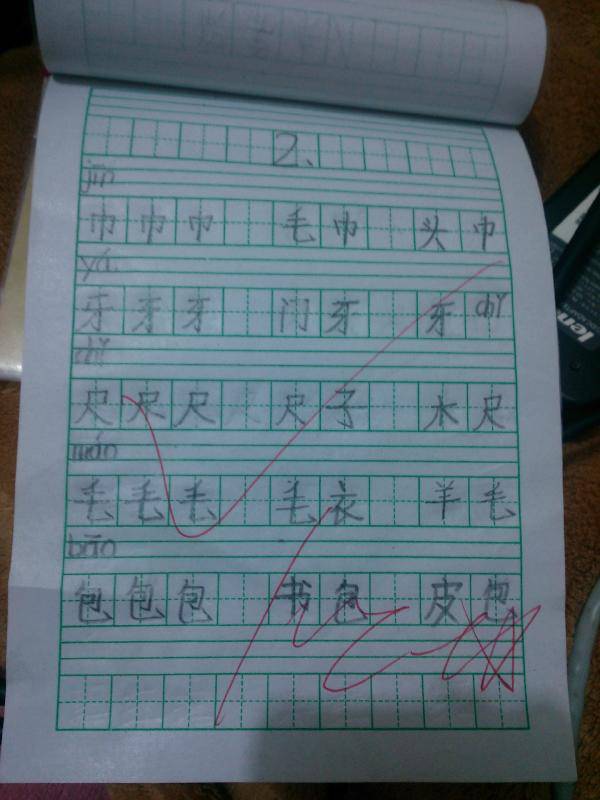 2、
jīn
巾 巾 巾 毛 巾 头 巾
yá
牙 牙 牙 门 牙 牙 chǐ
chǐ
尺 尺 尺 尺 子 木 尺
máo
毛 毛 毛 毛 衣 羊 毛
bāo
包 包 包 书 包 皮 包